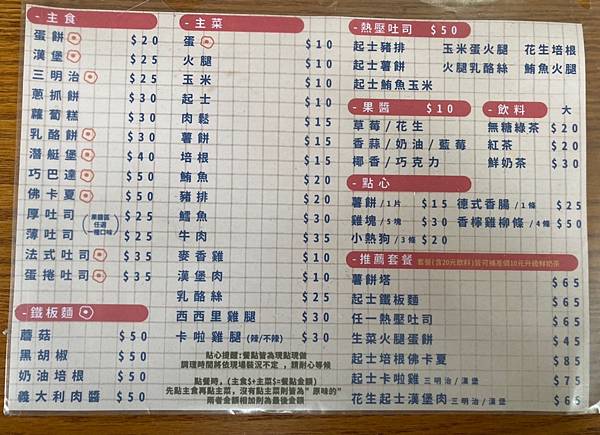 - 主食
蛋餅 $20
漢堡 $25
三明治 $25
蔥抓餅 $30
蘿蔔糕 $30
乳酪餅 $30
潛艇堡 $40
巧巴達 $50
佛卡夏 $50
厚吐司 (果醬區任選一種口味) $25
薄吐司 $25
法式吐司 $35
蛋捲吐司 $35
- 鐵板麵
蘑菇 $50
黑胡椒 $50
奶油培根 $50
義大利肉醬 $50
- 主菜
蛋 $10
火腿 $10
玉米 $10
起士 $10
肉鬆 $15
薯餅 $15
培根 $15
鮪魚 $20
豬排 $20
鱈魚 $30
牛肉 $35
麥香雞 $10
漢堡肉 $10
乳酪絲 $25
西西里雞腿 $30
卡啦雞腿 (辣/不辣) $30
貼心提醒:餐點皆為現點現做
調理時間將依現場裝況不定,請耐心等候
點餐時,(主食$+主菜$=餐點金額)
先點主食再點主菜,沒有點主菜則皆為"原味的"
兩者金額相加則為最後金額
- 熱壓吐司 $50
起士豬排 玉米蛋火腿 花生培根
起士薯餅 火腿乳酪絲 鮪魚火腿
起士鮪魚玉米
- 果醬 $10
草莓/花生
香蒜/奶油/藍莓
椰香/巧克力
- 飲料 大
無糖綠茶 $20
紅茶 $20
鮮奶茶 $30
- 點心
薯餅/1片 $15 德式香腸/1條 $25
雞塊/5塊 $30 香檸雞柳條/4條 $50
小熱狗/3條 $20
- 推薦套餐 套餐(含20元飲料)皆可補差價10元升級鮮奶茶
薯餅塔 $65
起士鐵板麵 $65
任一熱壓吐司 $65
生菜火腿蛋餅 $45
起士培根佛卡夏 $85
起士卡啦雞 三明治/漢堡 $75
花生起士漢堡肉 三明治/漢堡 $65